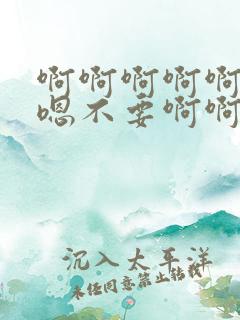 啊啊啊啊啊
嗯不要啊啊
沉入太平洋
未经同意禁止转载